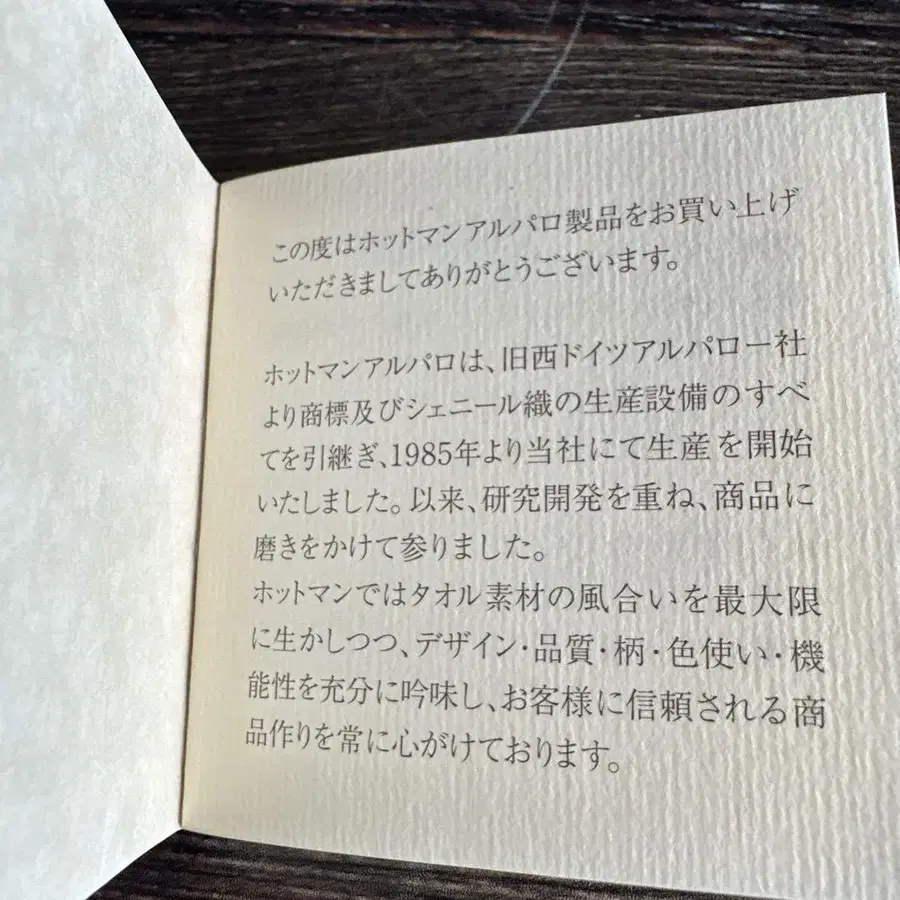 この度はホットマンアルパロ製品をお買い上げ
いただきましてありがとうございます。
ホットマンアルパロは、旧西ドイツアルパロー社
より商標及びシェニール織の生産設備のすべ
てを引継ぎ、1985年より当社にて生産を開始
いたしました。以来、研究開発を重ね、商品に
磨きをかけて参りました。
ホットマンではタオル素材の風合いを最大限
に生かしつつ、デザイン・品質・柄・色使い・機
能性を充分に吟味し、お客様に信頼される商
品作りを常に心がけております。